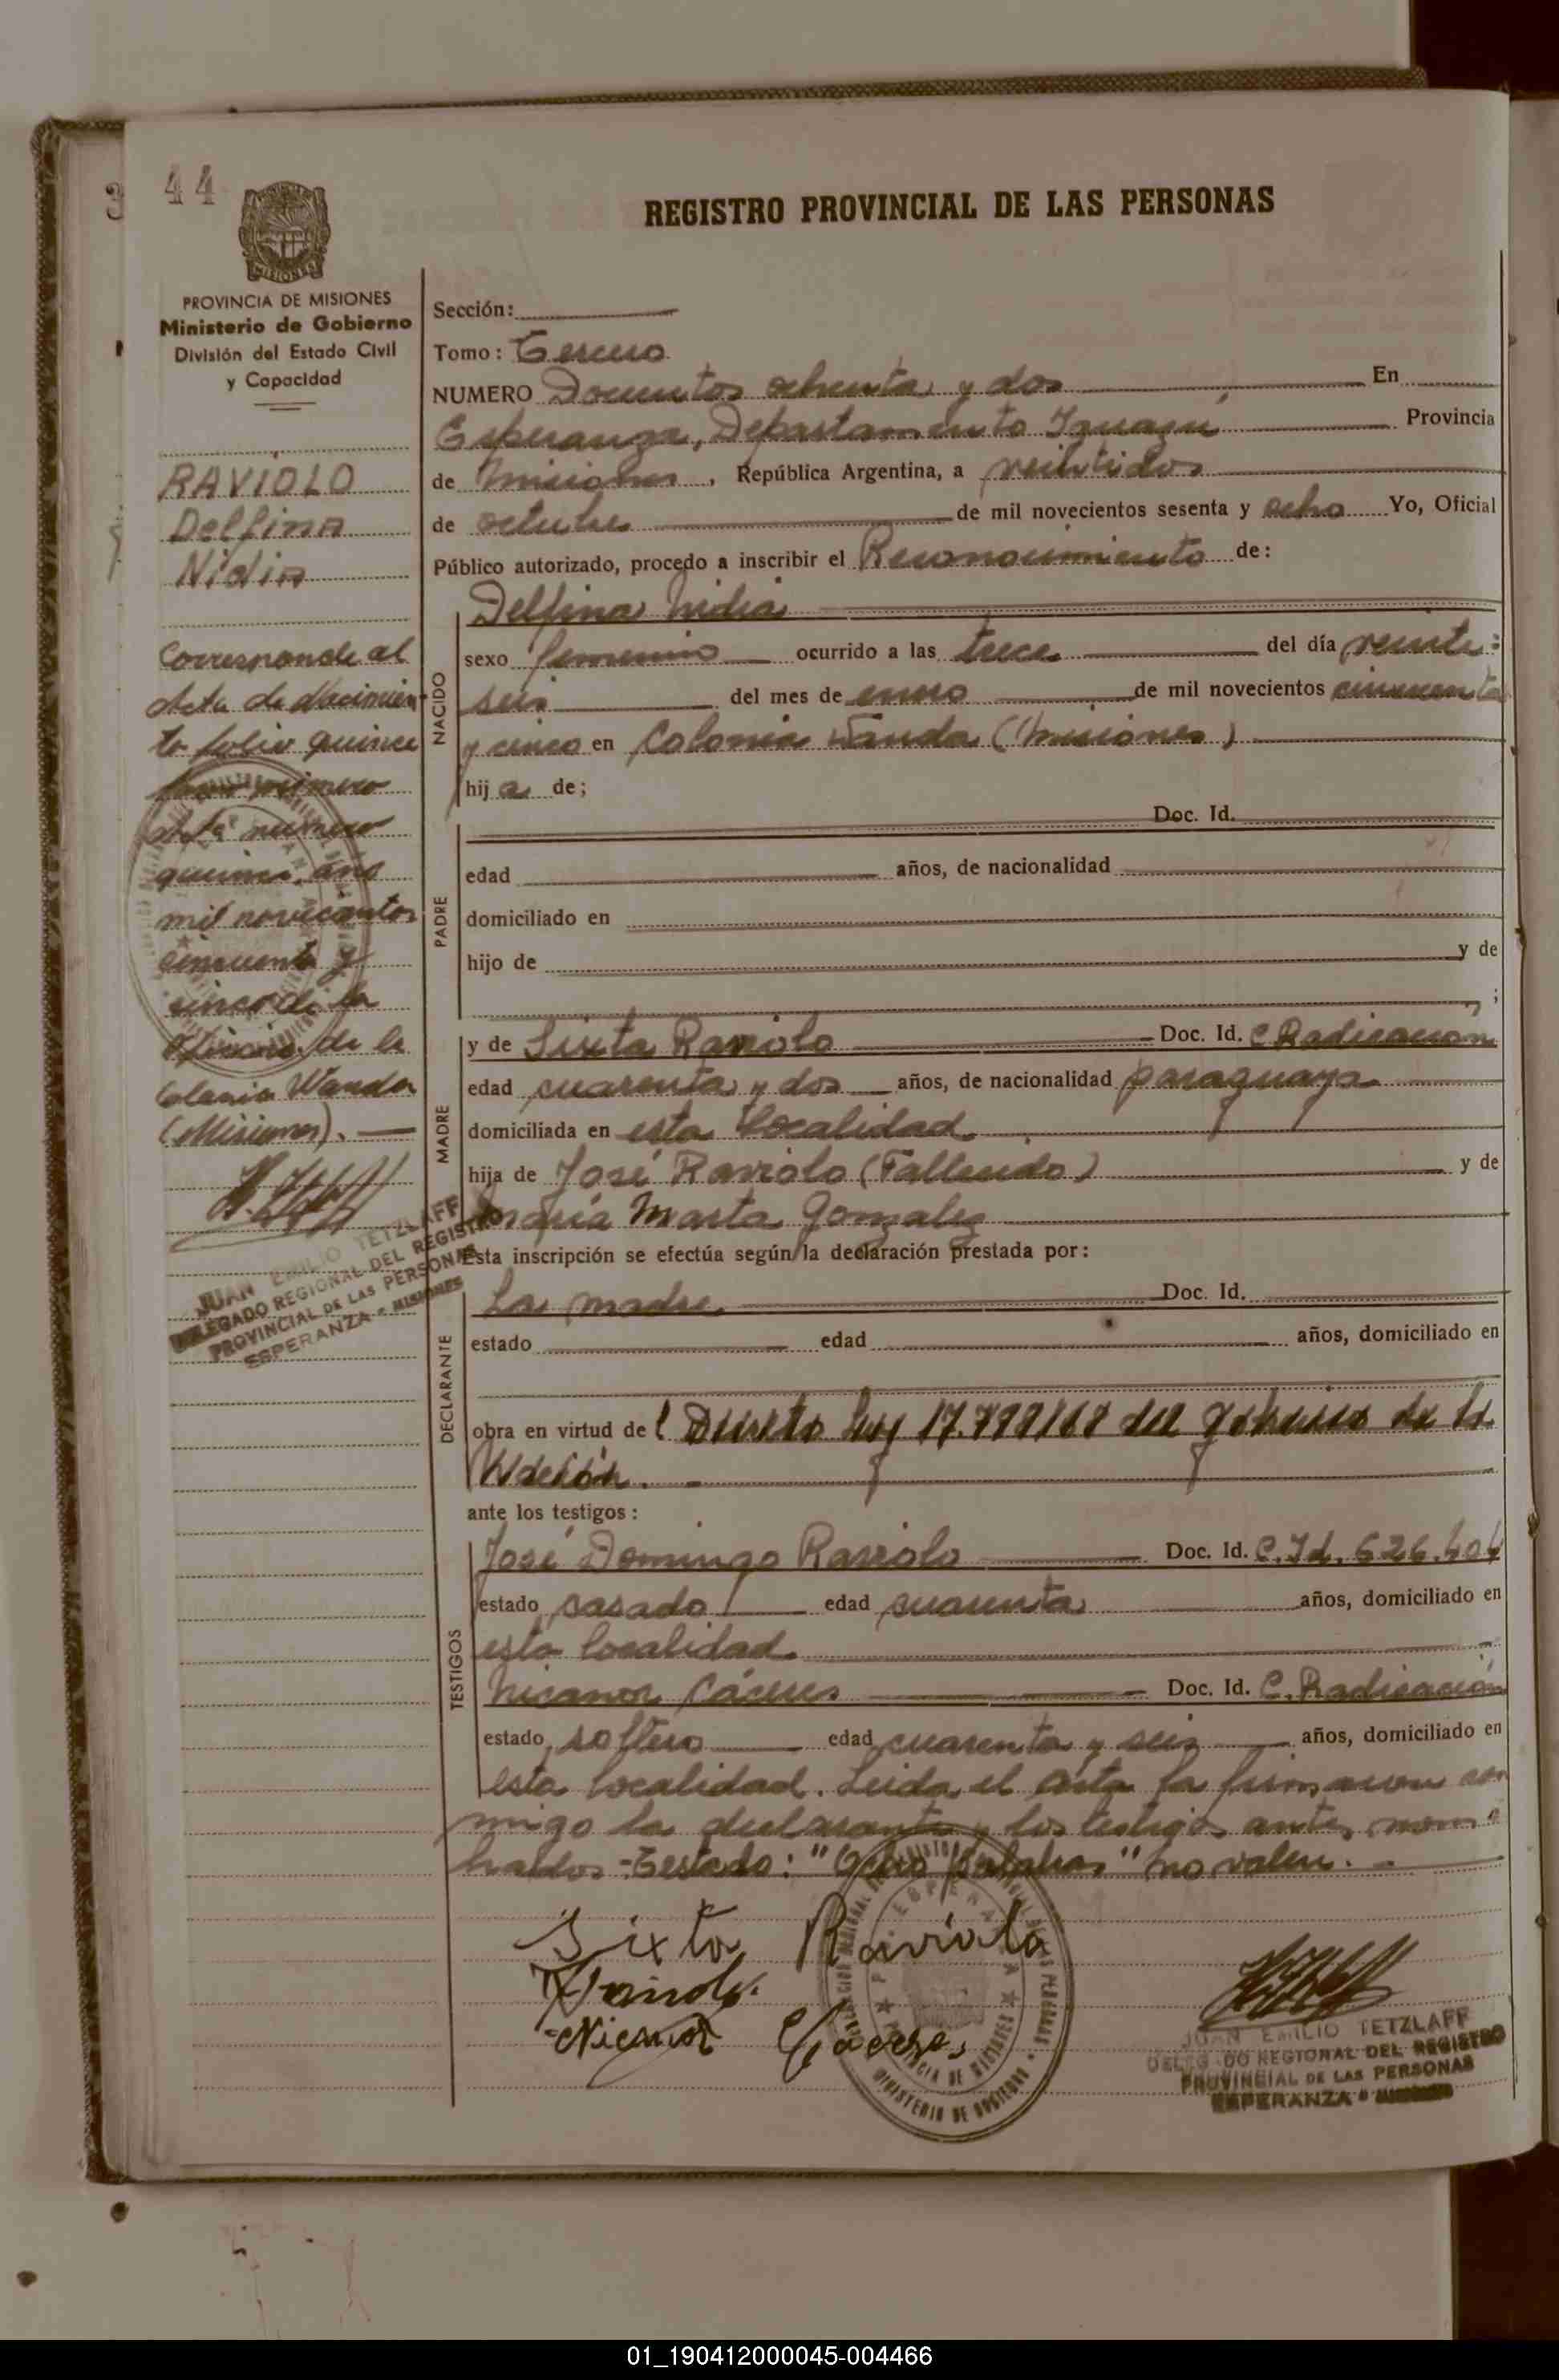 44
REGISTRO PROVINCIAL DE LAS PERSONAS
PROVINCIA DE MISIONES
Ministerio de Gobierno
División del Estado Civil
y Capacidad
RAVIOLO
Delfina
Nidia
Corresponde al
Acta de Nacimien
to folio quince
tomo primero
acta número
quince, año
mil novecientos
cincuenta y
cinco de la
Oficina de la
Colonia Wanda
(Misiones).
JUAN EMILIO TETZLAFF
DELEGADO REGIONAL DEL REGISTRO
PROVINCIAL DE LAS PERSONAS
ESPERANZA - MISIONES
Sección:
Tomo: Tercero
NUMERO Doscientos ochenta y dos En
Esperanza, Departamento Iguazú Provincia
de Misiones, República Argentina, a veintidos
de octubre de mil novecientos sesenta y ocho Yo, Oficial
Público autorizado, procedo a inscribir el Reconocimiento de:
NACIDO
Delfina Nidia
sexo femenino ocurrido a las trece del día veinte:
seis del mes de enero de mil novecientos cincuenta
y cinco en Colonia Wanda (Misiones)
hij a de;
PADRE
Doc. Id.
edad años, de nacionalidad
domiciliado en
hijo de y de
;
MADRE
y de Sixta Raviolo Doc. Id. C Radicación
edad cuarenta y dos años, de nacionalidad paraguaya
domiciliada en esta localidad
hija de José Raviolo (Fallecido) y de
María Marta Gonzalez
Esta inscripción se efectúa según la declaración prestada por:
DECLARANTE
La madre Doc. Id.
estado edad años, domiciliado en
obra en virtud de l Decreto Ley del gobierno de la
Nación.
ante los testigos:
TESTIGOS
José Domingo Raviolo Doc. Id. C. Id. 626.404
estado casado edad cuarenta años, domiciliado en
esta localidad.
Nicanor Cáceres Doc. Id. C. Radicación
estado soltero edad cuarenta y seis años, domiciliado en
esta localidad. Leida el acta la firmaron con
migo la declarante y los testigos antes nom=
brados =Testado: "Ocho palabras" no valen.
Sixta Raviolo
Nicanor Caceres
JUAN EMILIO TETZLAFF
DELEGADO REGIONAL DEL REGISTRO
PROVINCIAL DE LAS PERSONAS
ESPERANZA - MISIONES
01_190412000045-004466